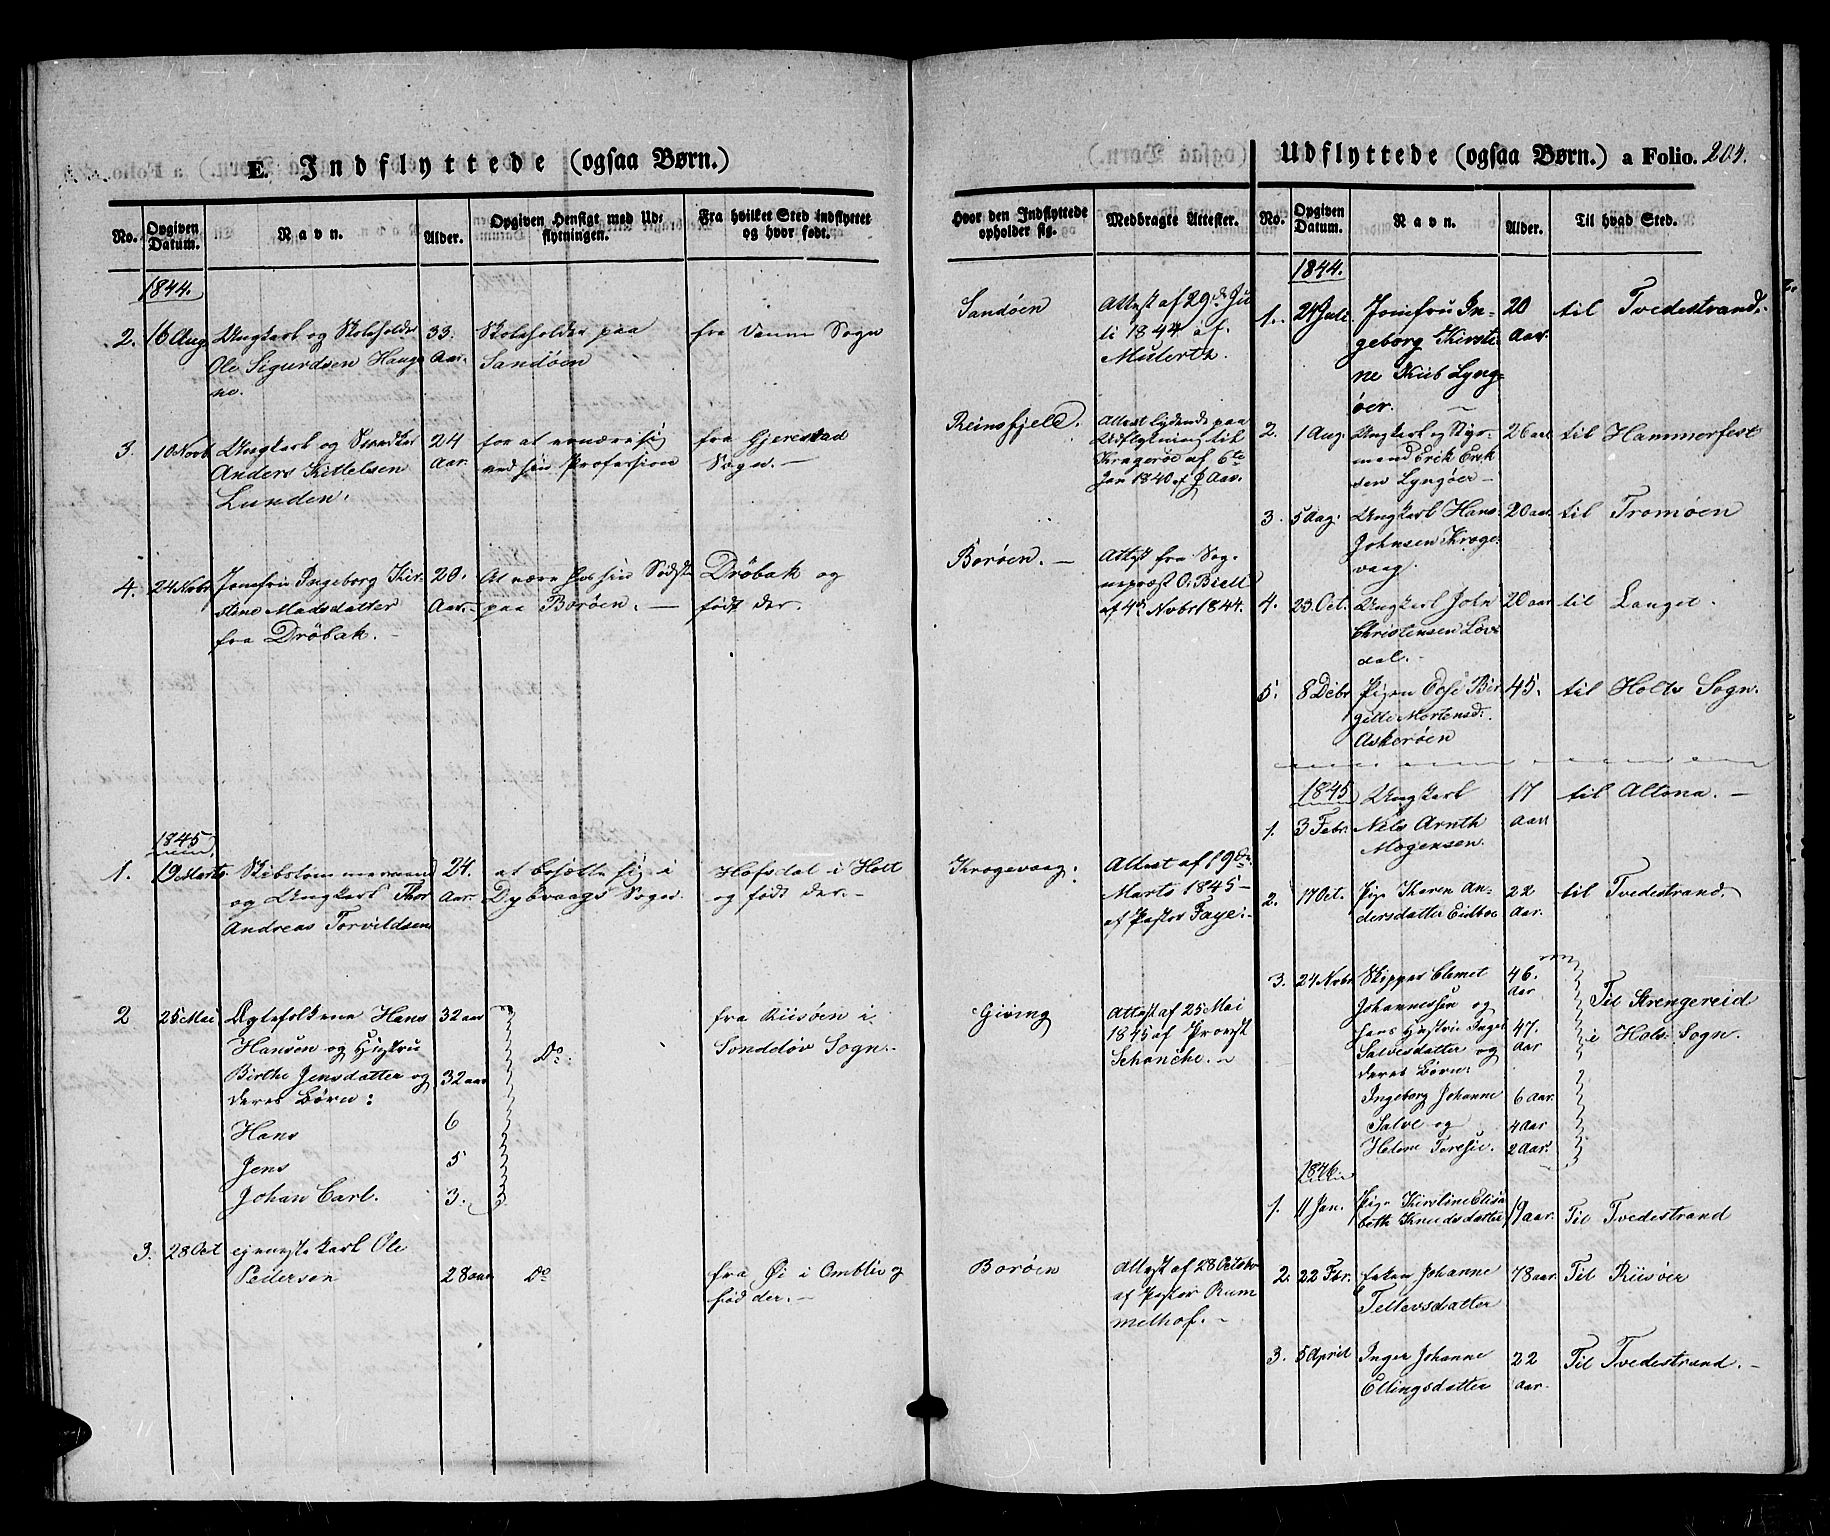 E. Indflyttede (ogsaa Børn.)
No.
Opgiven Datum.
Navn.
Alder.
Opgiven Hensigt med Udflytningen.
Fra hvilket Sted indflyttet og hvor født.
1844.
2. 16 Aug. Ungkarl og Skoleholder 33. Skoleholder paa fra Vanse Sogn
Ole Sigurdsen Hauge Aar. Sandøen
ne.
3. 10 Novb Ungkarl og Snedker 24 for at ernære sig fra Gjerestad
Anders Kittelsen Aar. ved sin Profession Sogn. —
Lunden.
4. 24 Novbr Jomfru Ingeborg Kir= 20. At være hos sin Søster Drøbak og
stine Madsdatter Aar. paa Borøen. — født der.
fra Drøbak. —
1845
1. 19 Marts Skibstømmermand 24. at bosætte sig i Hofsdal i Holt
og Ungkarl Thor Aar. Dybvaags Sogn. og født der. —
Andreas Torvildsen
2 25 Mai Ægtefolkene Hans 32 aar fra Riisøen i
Hansen og Hustru Do. Sønddøv Sogn. —
Birthe Jensdatter og 32 aar
deres Børn:
Hans 6
Jens 5
Johan Carl. 3.
3. 28 Oct Ole
Pedersen 28 aar Do fra Øi i Omblie og
fød der. —
Hvor den Indflyttede opholder sig.
Medbragte Attester.
Sandøen Attest af 29de Ju
li 1844 af
Mulertz.
Reinsfjeld. Attest lydende paa
Udflytning til
Kragerøe af 6te
Jan 1840 af P. Aar.
Borøen. — Attest fra Sog=
nepræst O. Bield
af 4de Novbr 1844.
Krogevaag. Attest af 19de
Marts 1845 —
af Pastor Faye. —
Giving Attest af 25 Mai
1845 af Provst
Schanche. —
Borøen Attest af 28 Octobr
af Pastor Rum
melhof. —
Udflyttede (ogsaa Børn.) a Folio. 204.
No.
Opgiven Datum.
Navn.
Alder.
Til hvad Sted.
1844.
1. 24 Juli. Jomfru In= 20 til Tvedestrand.
geborg Kirsti= Aar.
ne Lyng=
øer. —
2. 1 Aug. Ungkarl og Styr= 26 aar til Hammerfest
mand Erik Erik
sen Lyngøer —
3. 5 Aug. Ungkarl Hans 20 aar til Tromøen
Johnsen Kroge=
vaag.
4. 23 Oct. Ungkarl John 20 aar til Langet.
Christensen Løv=
dal. —
5. 8 Debr Pigen Edse Bir= 45. til Holts Sogn.
gitte Mortensd.
Askerøen
1845 Ungkarl 17 til Altona. —
1. 3 Febr. Nels Arnth Aar
Mogensen.
2. 17 Oct. Pige Karen An= 22 til Tvedestrand.
dersdatter Eidboe Aar.
3. 24 Nvbr Skipper Clemet 46. Aar
Johannessen og Til Strengereid
hans Hustru Inger 47. i Holts Sogn.
Salvesdatter og Aar
deres Børn:
Ingeborg Johanne 6 Aar.
Salve og 4 Aar
Helene Teresie. 2 Aar.
1846.
1. 11 Jan. Pige Kirstine Elisa 19 aar. Til Tvedestrand
beth Knudsdatter
2. 22 Fbr. Enken Johanne 78 aar Til Riisøer
Tellevsdatter
3. 5 April Inger Johanne 22 Til Tvedestrand. —
Ellingsdatter aar.